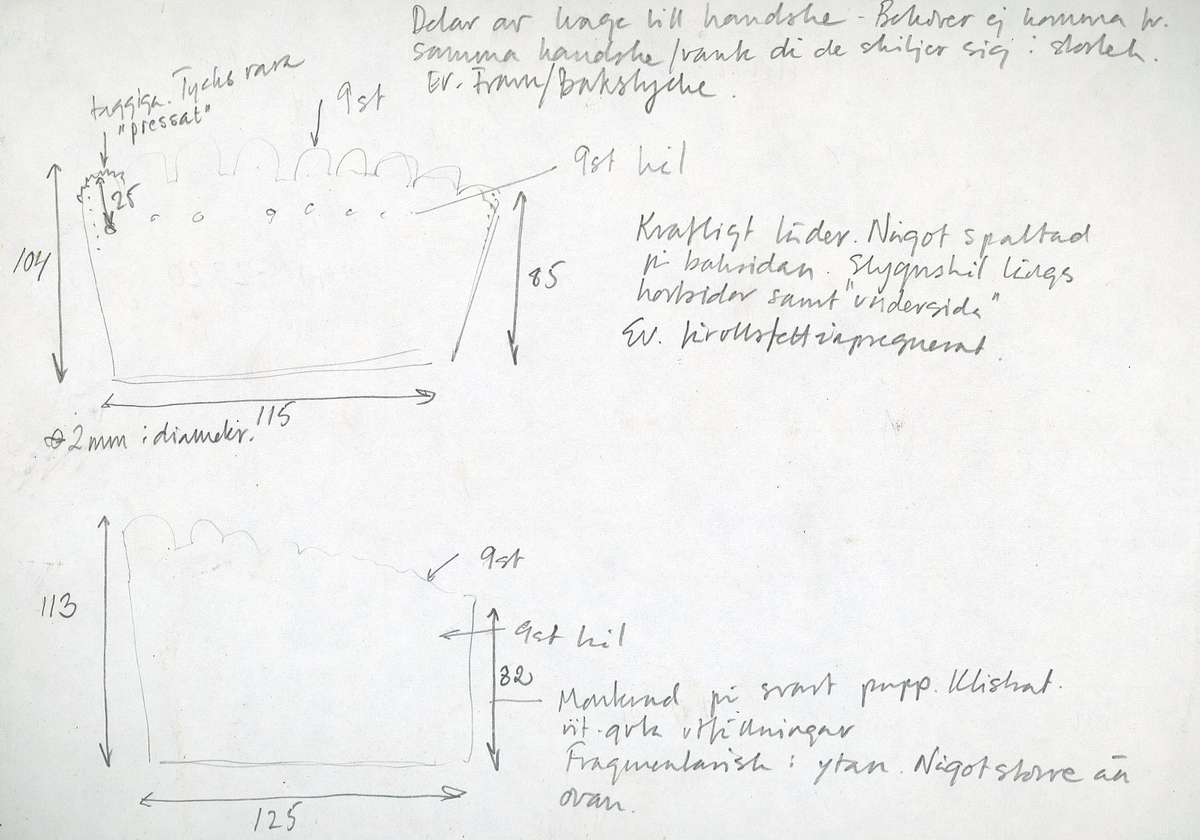 Delar av krage till handske - Behöver ej komma fr.
samma handske/vante då de skiljer sig i storlek.
Ev. Fram/Bakstycke.
taggiga. Tycks vara
"pressat"
9st
9st hål
25
104
85
115
2mm i diameter.
Kraftligt läder. Något spaltad
på baksidan. Stygnshål längs
kortsidor samt "undersida"
Ev.
9st
113
9st hål
82
Monterad på svart papp. Klistrat.
vit-gula utfällningar
Fragmentarisk i ytan. Något större än
ovan.
125